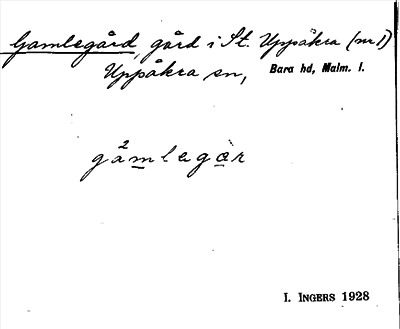 Gamlegård, gård i St. Uppåkra (nr 1)
Uppåkra sn, Bara hd, Malm. l.
gåmlegàr
I. INGERS 1928